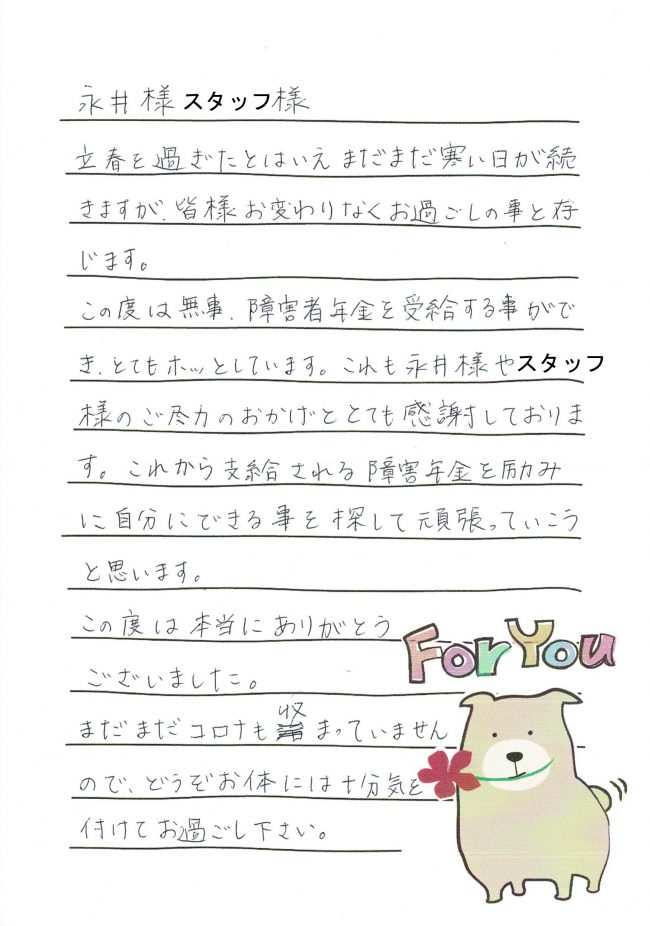 永井様スタッフ様
立春を過ぎたとはいえまだまだ寒い日が続
きますが、皆様お変わりなくお過ごしの事と存
じます。
この度は無事、障害者年金を受給する事がで
き、とてもホッとしています。これも永井様やスタッフ
様のご尽力のおかげととても感謝しておりま
す。これから支給される障害年金を励み
に自分にできる事を探して頑張っていこう
と思います。
この度は本当にありがとう
ございました。
まだまだコロナも収まっていません
ので、どうぞお体には十分気を
付けてお過ごし下さい。
For You